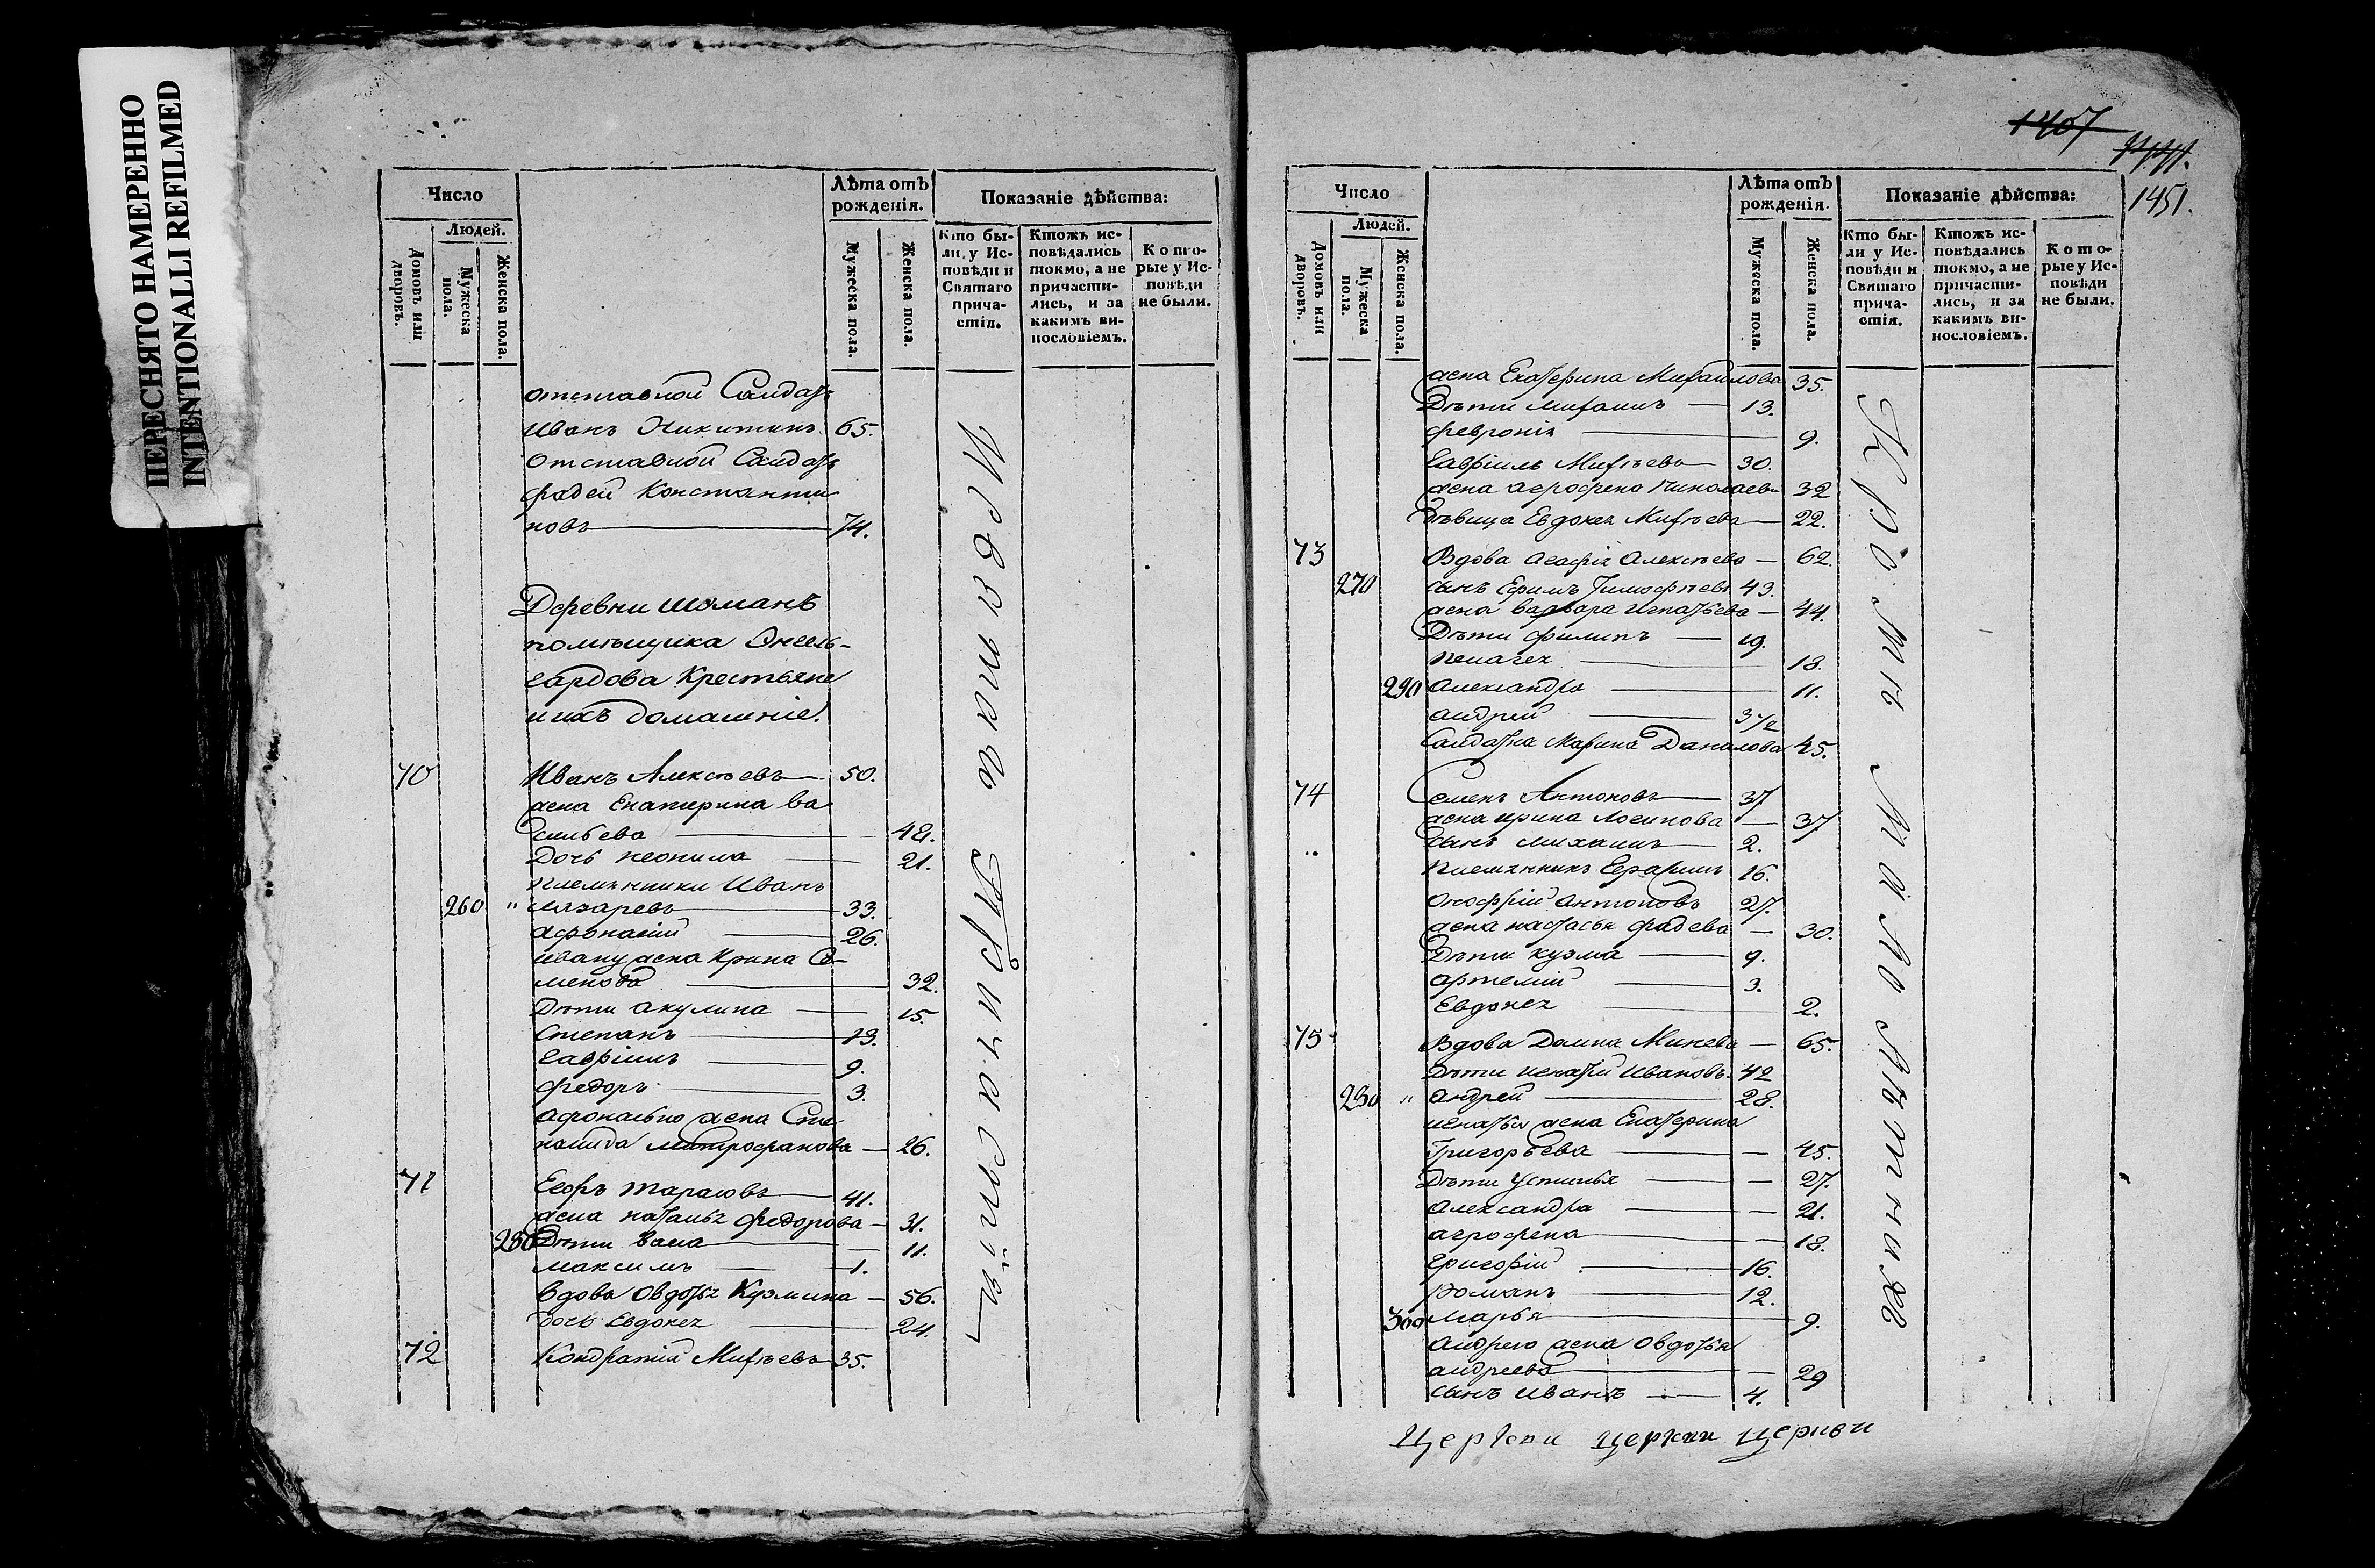 ПЕРЕСНЯТО НАМЕРЕННО
INTENTIONALLI REFILMED
Число
Лѣта отъ рожденія.
Показаніе дѣйства:
Людей.
Домовъ или дворовъ.
Мужеска пола.
Женска пола.
Мужеска пола.
Женска пола.
Кто бы-
ли у Ис-
повѣди и
Святаго
прича-
стія.
Ктожъ ис-
повѣдались
токмо, а не
причасти-
лись, и за
какимъ ви-
нословіемъ.
Кото-
рые у Ис-
повѣди
не были.
отставной Салдатъ
Иванъ Никитинъ 65.
Отставной Салдатъ
фадей Константи
новъ 74.
Деревни
помѣщика Энгель-
гардова Крестьяне
и ихъ домашніе.
70 Иванъ Алексѣевъ 50.
жена Екатерина Ва
сильева 48.
Дочь неонила 21.
племянники Иванъ
260 " 33.
афонасій 26.
ивану жена Ирина Се-
менова 32.
Дѣти акулина 15.
Степанъ 13.
Гавріилъ 9.
федоръ 3.
афонасью жена Сте
понида митрофанова — 26.
71 Егоръ тарасовъ 41.
жена наталья федорова — 31.
280 Дѣти — 11.
максимъ 1.
вдова овдотья Кузмина — 56.
дочь Евдокея 24.
72 Кондратій Михѣевъ 35.
1407
1451.
Число
Лѣта отъ рожденія.
Показаніе дѣйства:
Людей.
Домовъ или дворовъ.
Мужеска пола.
Женска пола.
Мужеска пола.
Женска пола.
Кто бы-
ли у Ис-
повѣди и
Святаго
прича-
стія.
Ктожъ ис-
повѣдались
токмо, а не
причасти-
лись, и за
какимъ ви-
нословіемъ.
Кото-
рые у Ис-
повѣди
не были.
жена Екатерина Михайлова 35.
Дѣти михаилъ — 13.
февронія 9.
Гавріилъ Михѣевъ 30.
жена агрофена николаева 32
дѣвица Евдокея Михѣева — 22.
73 Вдова агафія алексѣева — 62.
270 сынъ Ефимъ Тимофѣевъ 43.
жена варвара игнатьева — 44.
Дѣти филипъ — 19.
пелагея 18.
290 александра 11.
андрей 3 1/2
Салдатка Марина Данилова 45.
74 Семенъ Антоновъ 37
жена ирина логинова — 37
сынъ михаилъ 2.
племянникъ Герасимъ 16.
онофрій антоновъ 27.
жена настасья фадева — 30.
Дѣти кузма 9.
артемій 3.
Евдокея 2.
75 Вдова Домна Минева — 65.
Дѣти игнатій Ивановъ 42
280 " андрей 28.
игнатья жена Екатерина
Григорьева — 45.
Дѣти устинья — 27.
александра — 21.
агрофена — 18.
григорій 16.
романъ 12.
300 марья 9.
андрею жена овдотья
андреева — 29
сынъ иванъ 4.
церкви церкви